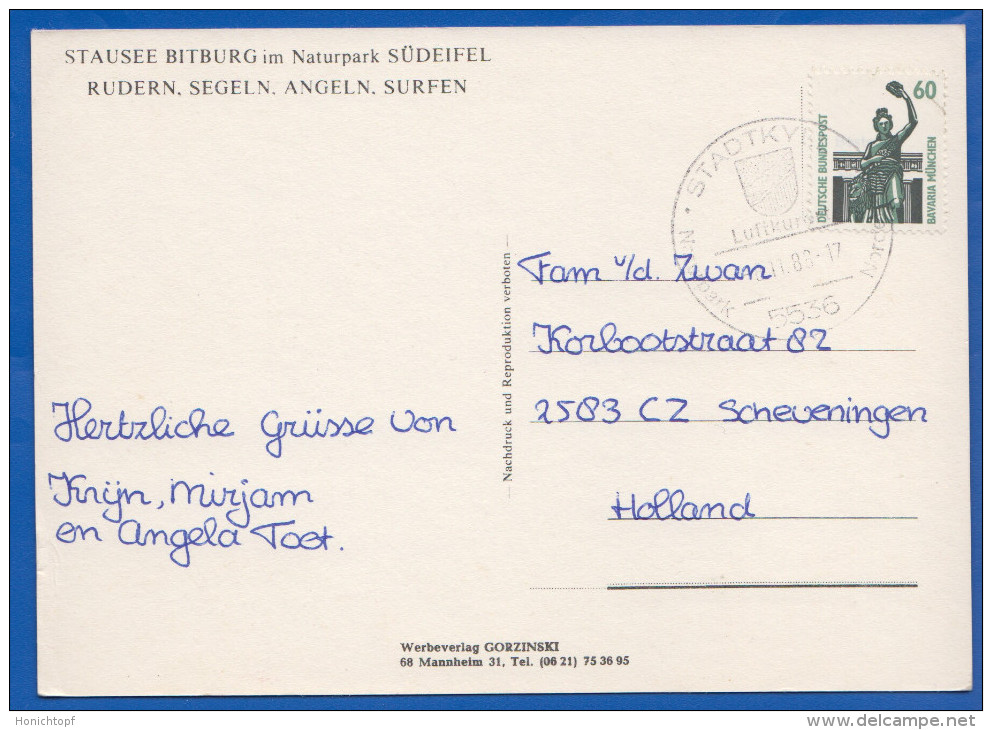 STAUSEE BITBURG im Naturpark SÜDEIFEL
RUDERN, SEGELN, ANGELN, SURFEN
60
DEUTSCHE BUNDESPOST
BAVARIA MÜNCHEN
STADTKY
Luftkur
5536
Nachdruck und Reproduktion verboten
Fam v/d. Zwan
Korbootstraat 82
2583 CZ Scheveningen
Holland
Hertzliche Grüsse von
Krijn, Mirjam
en Angela Toet.
Werbeverlag GORZINSKI
68 Mannheim 31, Tel. (06 21) 75 36 95
Honichtopf
www.delcampe.net